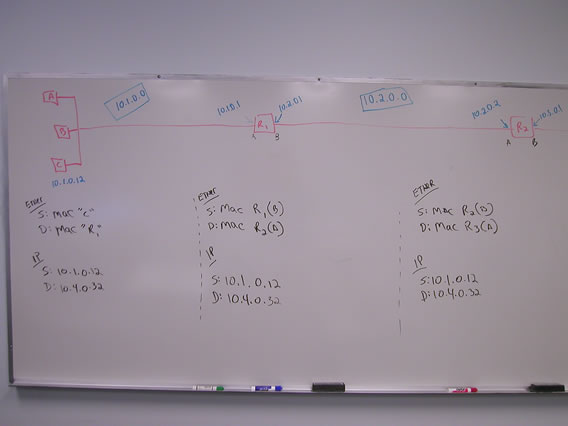 A
B
C
10.1.0.12
10.1.0.0
10.1.0.1
R1
10.2.0.1
A
B
10.2.0.0
10.2.0.2
R2
A
B
ETHER
S: MAC "C"
D: MAC "R1"
IP
S: 10.1.0.12
D: 10.4.0.32
ETHER
S: MAC R1(B)
D: MAC R2(A)
IP
S: 10.1.0.12
D: 10.4.0.32
ETHER
S: MAC R2(B)
D: MAC R3(A)
IP
S: 10.1.0.12
D: 10.4.0.32